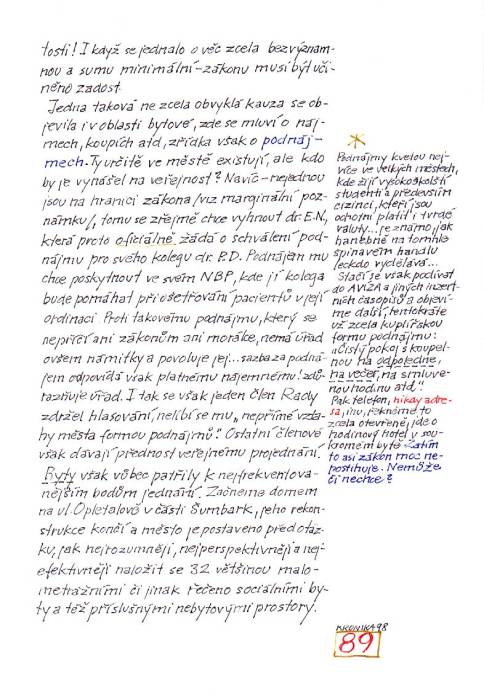 tosti! I když se jednalo o věc zcela bezvýznam-
nou a sumu minimální - zákonu musí být uči-
něno zadost.
Jedna taková ne zcela obvyklá kauza se ob-
jevila i v oblasti bytové, zde se mluví o náj-
mech, koupích atd, zřídka však o podnáj-
mech. Ty určitě ve městě existují, ale kdo
by je vynášel na veřejnost? Navíc - nejednou
jsou na hranici zákona /viz marginální poz-
námku/, tomu se zřejmě chce vyhnout dr. E.N.,
která proto oficiálně žádá o schválení pod-
nájmu pro svého kolegu dr. P.D. Podnájem mu
chce poskytnout ve svém NBP, kde jí kolega
bude pomáhat při ošetřování pacientů v její
ordinaci. Proti takovému podnájmu, který se
nepříčí ani zákonům ani morálce, nemá úřad
ovšem námitky a povoluje jej... sazba za podná-
jem odpovídá však platnému nájemnému! zdů-
razňuje úřad. I tak se však jeden člen Rady
zdržel hlasování, nelíbí se mu „nepřímé vzta-
hy města formou podnájmů". Ostatní členové
však dávají přednost veřejnému projednání.
Byty však vůbec patřily k nejfrekventova-
nějším bodům jednání. Začneme domem
na ul. Opletalově v části Šumbark, jeho rekon-
strukce končí a město je postaveno před otáz-
ku, jak nejrozumněji, nejperspektivněji a nej-
efektivněji naložit se 32 většinou malo-
metrážními či jinak řečeno sociálními by-
ty a též příslušnými nebytovými prostory.
Podnájmy kvetou nej-
více ve velkých městech,
kde žijí vysokoškolští
studenti a především
cizinci, kteří jsou
ochotni platit i tvrdé
valuty... je známo, jak
hanebně na tomhle
špinavém handlu
leckdo vydělává...
Stačí se však podívat
do AVIZA a jiných inzert-
ních časopisů a objeví-
me další, tentokráte
už zcela kuplířskou
formu podnájmu:
„čistý pokoj s koupel-
nou na odpoledne,
na večer, na smluve-
nou hodinu atd."
Pak telefon, nikdy adre-
sa, inu, řekněme to
zcela otevřeně, jde o
hodinový hotel v sou-
kromém bytě. Zatím
to asi zákon moc ne-
postihuje. Nemůže
či nechce?
KRONIKA 98
89